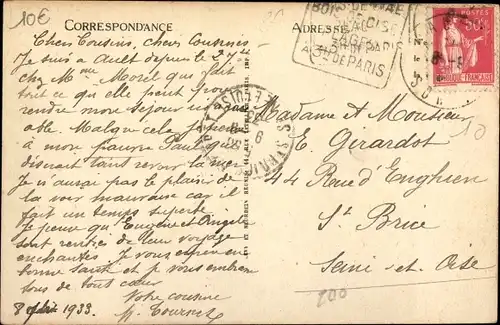 10€
CORRESPONDANCE
Chers Cousins, chères Cousines
Je suis à Ault depuis le 27
chez Mme Morel qui fait
tout ce qu'elle peut pour
rendre mon séjour agré
able. Malgré cela je pense
à mon pauvre Paul qui
disait tant revoir la mer
Je n'aurai pas le plaisir de
la voir mauvaise car il
fait un temps superbe
Je pense que Eugène et Angèle
sont rentrés de leur voyage
enchantés. Je vous espère en
bonne santé et je vous embrasse
tous de tout cœur
Votre cousine
8 1933. M.
ADRESSE
BOIS DE
PARIS
PARIS
50c
POSTES
Madame et Monsieur
E. Girardot
44 Rue d'Enghien
St Brice
Seine et Oise
10
200